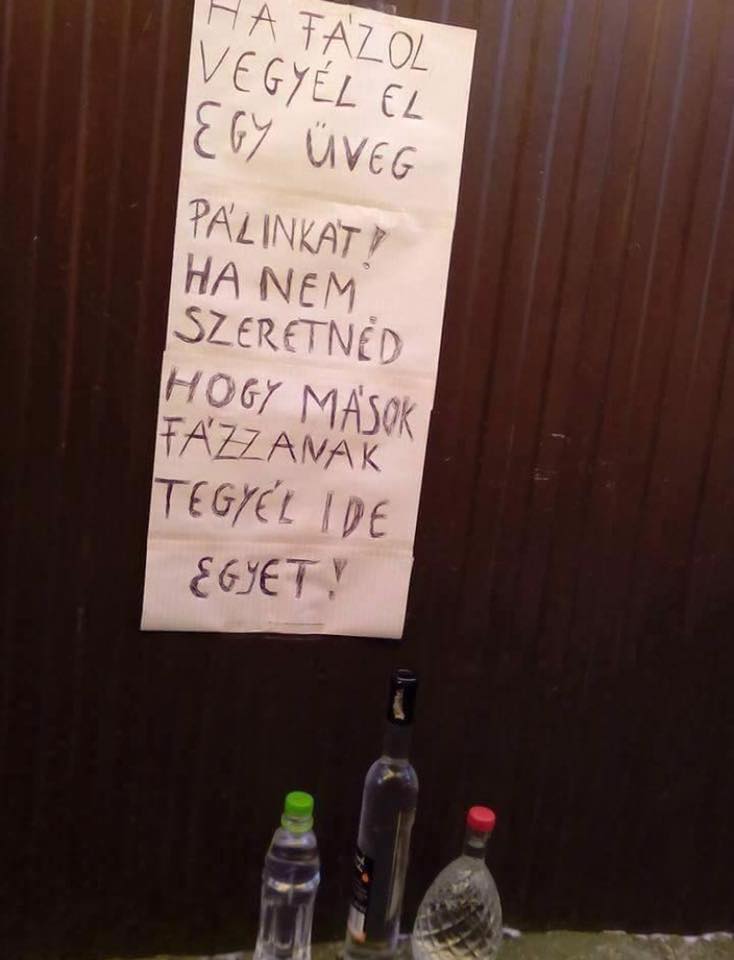 HA FÁZOL
VEGYÉL EL
EGY ÜVEG
PÁLINKÁT!
HA NEM
SZERETNÉD
HOGY MÁSOK
FÁZZANAK
TEGYÉL IDE
EGYET!